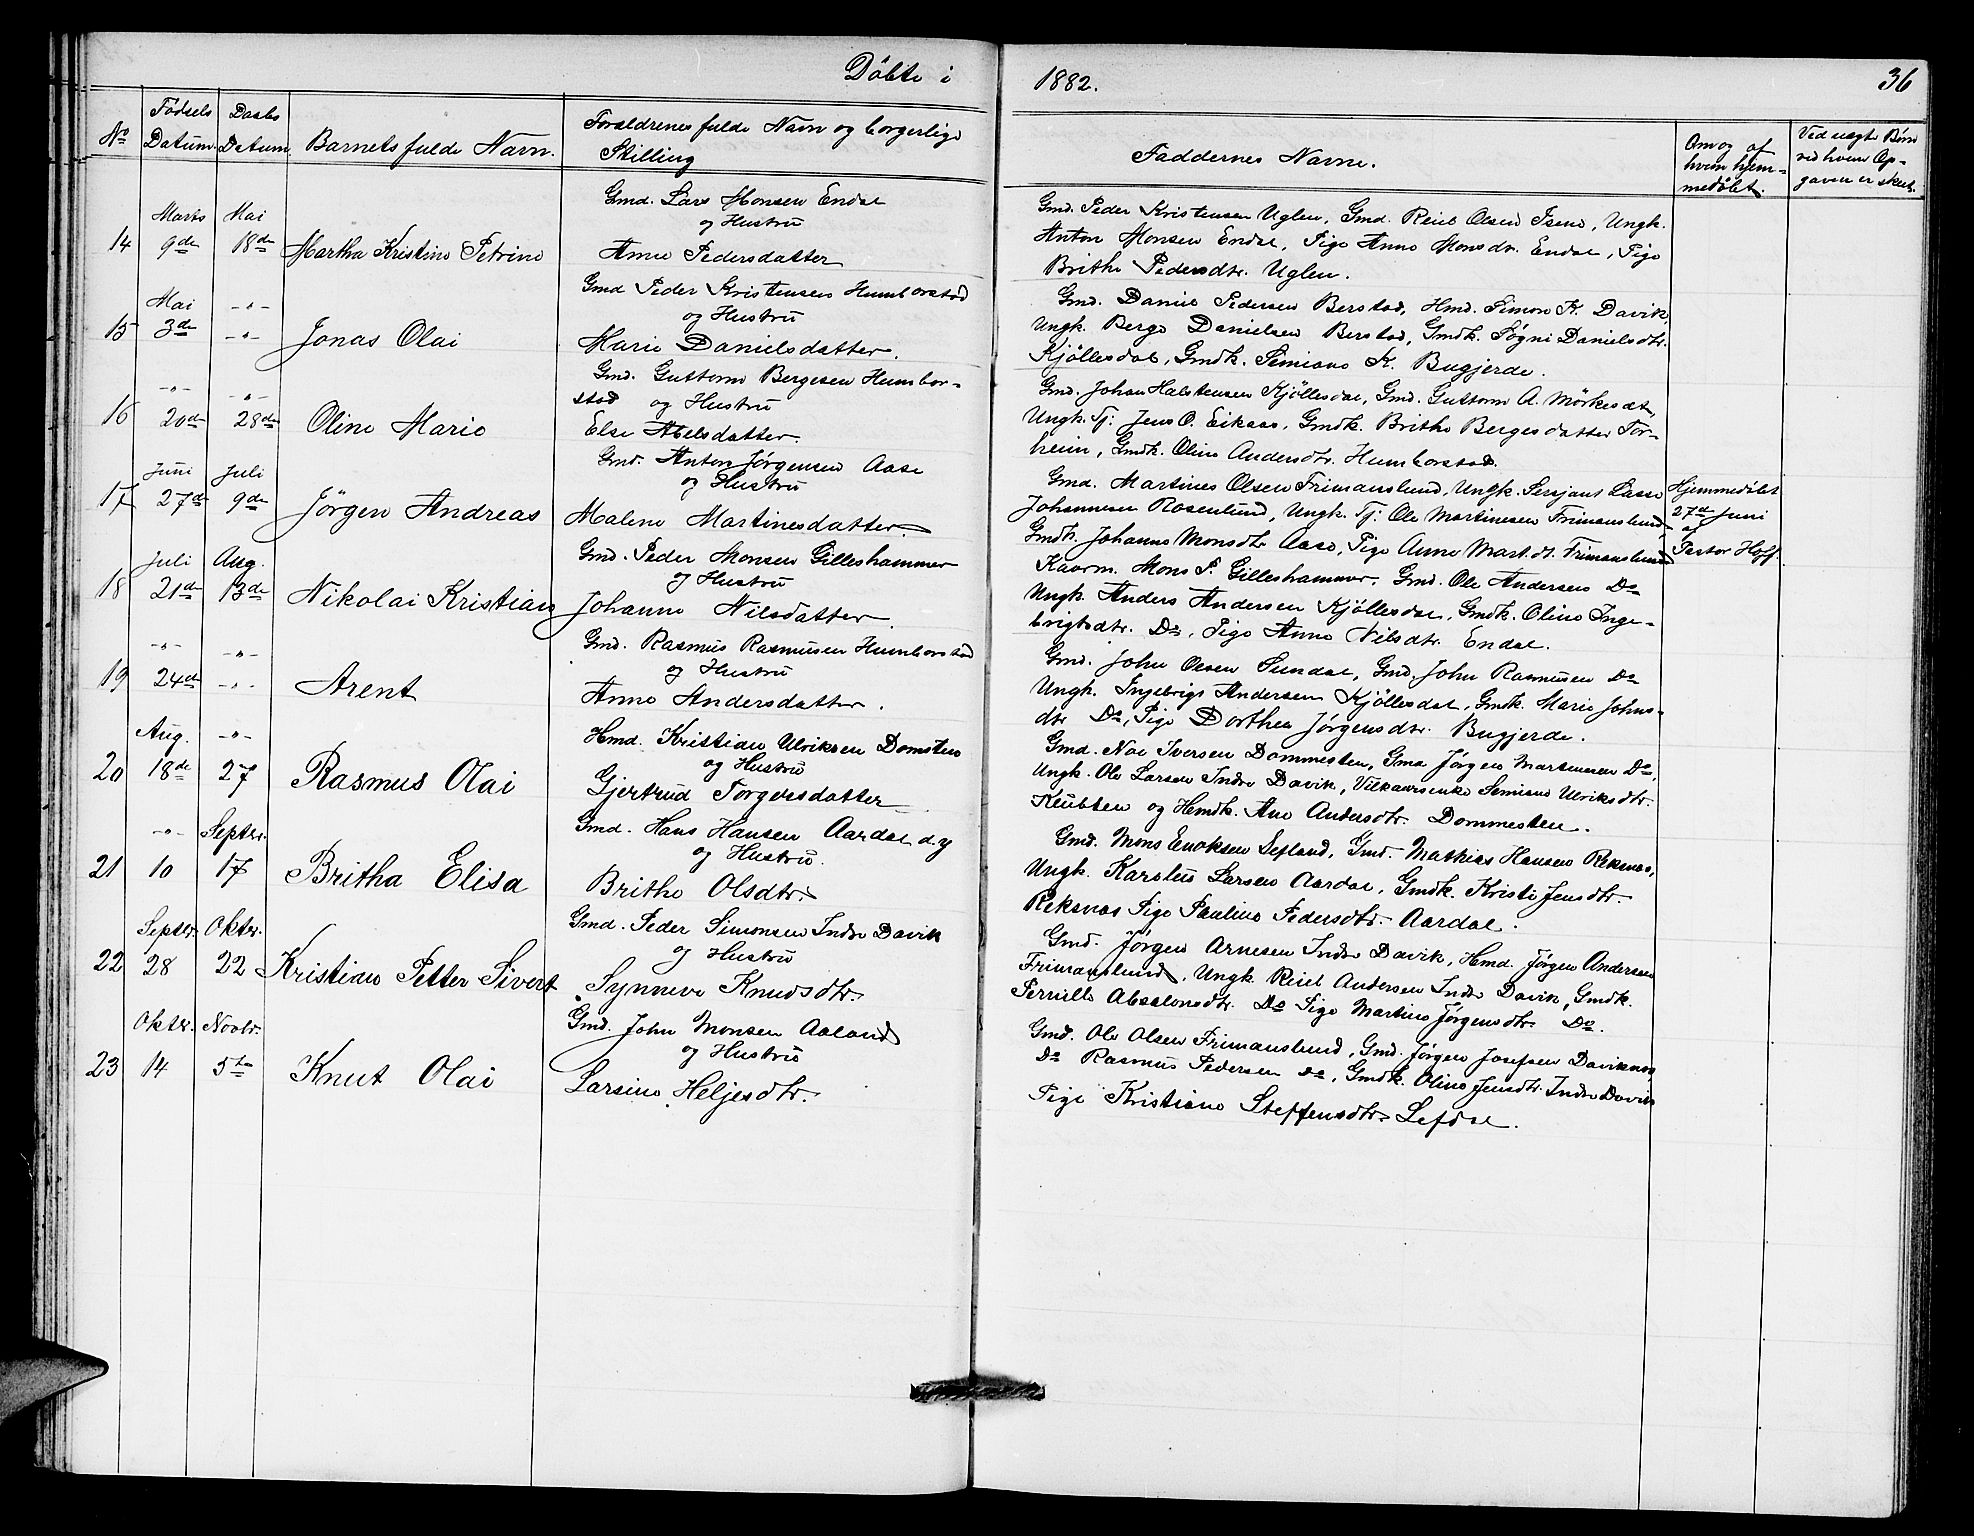 Döbte i 1882. 36
No
Fødsels Datum.
Daabs Datum.
Barnets fulde Navn.
Forældrenes fulde Navn og borgerlige
Stilling
Faddernes Navne.
Om og af
hvem hjem-
medøbt.
Ved uægte Børn
ved hvem Op-
gaven er skeet.
Marts Mai
14 9de 18de Martha Kristine Petrine
Gmd. Lars Monsen Endal
og Hustru
Anne Pedersdatter
Gmd. Peder Kristensen Uglen, Gmd. Reiel Olsen Isene, Ungk.
Anton Monsen Endal, Pige Anne Monsdtr. Endal, Pige
Brithe Pedersdtr. Uglen.
Mai -"-
15 3de -"- Jonas Olai
Gmd Peder Kristensen Humborstad
og Hustru
Marie Danielsdatter.
Gmd. Daniel Pedersen Berstad, Hmd. Simon K. Davik,
Ungk. Berge Danielsen Berstad, Gmdk. Søgni Danielsdtr.
Kjöllesdal, Gmdk. Simiane K. Bugjerde.
-"- -"-
16 20de 28de Oline Marie
Gmd. Guttorm Bergesen Humbor-
stad og Hustru
Else Abelsdatter.
Gmd. Johan Halstensen Kjöllesdal, Gmd. Guttorm A. Mörkesdal,
Ungk. Tj: Jens O. Eikaas, Gmdk. Brithe Bergesdatter Tor-
heim, Gmdk. Oline Andersdtr. Humborstad.
Juni Juli
17 27de 9de Jörgen Andreas
Gmd. Anton Jørgensen Aase
og Hustru
Malene Martinesdatter.
Gmd. Martines Olsen Frimanslund, Ungk. Sersjant Lasse
Johannesen Rosenlund, Ungk. Tj: Ole Martinesen Frimanslund,
Gmdk. Johanne Monsdtr Aase, Pige Anne Mart.dt. Frimanslund
Hjemmedöbt
27de Juni
af
Pastor Hoff.
Juli Aug.
18 21de 13de Nikolai Kristian
Gmd. Peder Monsen Gilleshammer
og Hustru
Johanne Nilsdatter.
Kaarm. Mons P. Gilleshammer, Gmd. Ole Andersen Do
Ungk. Anders Andersen Kjöllesdal, Gmdk. Oline Inge-
brigtsdtr. Do, Pige Anne Nilsdtr. Endal.
-"- -"-
19 24de -"- Arent
Gmd. Rasmus Rasmusen Humborstad
og Hustru
Anne Andersdatter.
Gmd. John Olsen Sundal, Gmd. John Rasmusen Do
Ungk. Ingebrigt Andersen Kjöllesdal, Gmdk. Marie Johns-
dtr Do, Pige Dorthea Jörgensdtr. Bugjerde.
Aug. -"-
20 18de 27 Rasmus Olai
Hmd. Kristian Ulriksen Domsten
og Hustru
Gjertrud Torgersdatter
Gmd. Noe Iversen Dommesten, Gmd Jörgen Martinesen Do,
Ungk. Ole Larsen Indre Davik, Vilkaarsenke Semine Ulriksdtr.
Klubben og Hmdk. Ane Andersdtr. Dommesten.
-"- Septbr.
21 10 17 Britha Elisa
Gmd. Hans Hansen Aardal d.y
og Hustru.
Brithe Olsdtr.
Gmd. Mons Enoksen Lefland, Gmd. Mathias Hansen Reksnes,
Ungk. Karolus Larsen Aardal, Gmdk. Kristi Jensdtr.
Reksnes Pige Pauline Pedersdtr. Aardal.
Septbr. Oktbr.
22 28 22 Kristian Petter Sivert
Gmd. Peder Simonsen Indre Davik
og Hustru
Synneve Knudsdtr.
Gmd. Jörgen Arnesen Indre Davik, Hmd. Jörgen Andersen
Frimanslund, Ungk. Reiel Andersen Indre Davik, Gmdk.
Pernille Absalonsdtr. Do Pige Martine Jörgensdtr Do.
Oktbr. Novbr.
23 14 5te Knut Olai
Gmd. John Monsen Aaland
og Hustru
Larsine Heljesdtr.
Gmd. Ole Olsen Frimanslund, Gmd. Jörgen Josefsen Daviknes,
Do Rasmus Pedersen Do, Gmdk. Oline Jensdtr. Indre Davik
Pige Kristiane Steffensdtr. Lefdal.